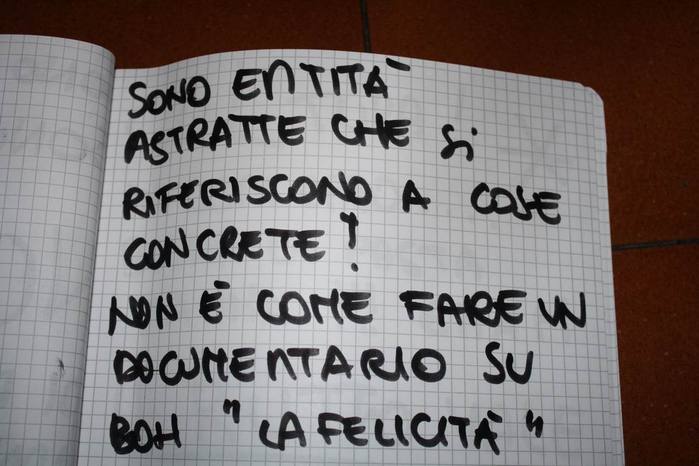 SONO ENTITÀ
ASTRATTE CHE Si
RIFERISCONO A COSE
CONCRETE!
NON È COME FARE UN
DOCUMENTARIO SU
BOH "LA FELICITÀ"